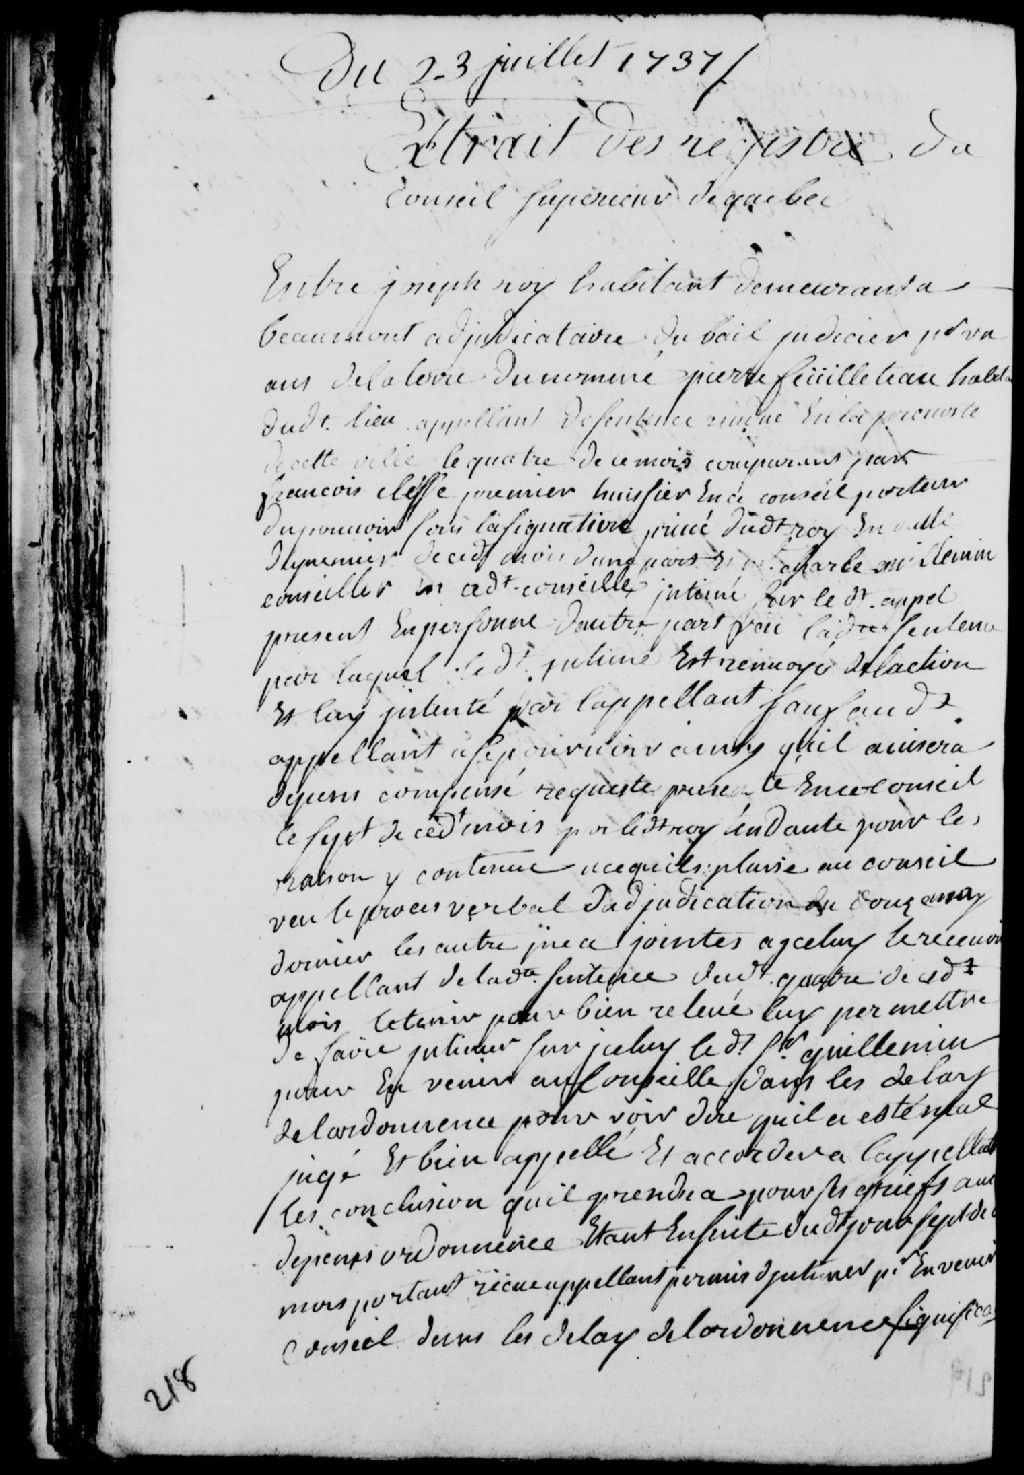 Du 23 juillet 1737/.
Extrait des registre du
Conseil superieur de quebec
Entre joseph roy habitant demeurant a
beaumont adjudicataire du bail judicier pr un
ans de la terre du nommé pierre feüilleteau habit
dudt. lieu appellant de sentence rendue En la prevosté
de cette ville le quatre de ce mois comparant par
francois clesse premier huissier En ce conseil porteur
du pouvoir sous la signature privé dudt roy En datte
du premier de cedt mois dune part Et Mr. charle guillemin
conseiller En cedt conseille intimé sur le dt. appel
present En personne dautre part veü ladte sentence
par laquel le dt. intimé Est renvoyé de laction
Et luy intenté par lappellant sauf audt
appellant a se pourvoir ainsy quil avisera
depens compensé requeste presenté En ce Conseil
le sept de cedt mois par ledt roy tendante pour les
raison y contenue a ce quil plaise au conseil
veu le proces verbal dadjudication du douze may
dernier les autre piece jointes a jceluy le recevoir
appellant de lade. sentence dudt. quatre de cedt
mois le tenir pour bien relevé luy permettre
de faire intimer sur jceluy le dt. Sr guillemin
pour En venir au Conseille dans les delay
de lordonnence pour voir dire quil a esté mal
jugé Et bien appellé Et accorder a lappellant
les conclusion quil prendra pour ses griefs aux
depens ordonnence Etant Ensuite dudt jour sept de ce
mois portant reçue appellant permis djntimer pr En venir
Conseil dans les delay de lordonnence significa
218